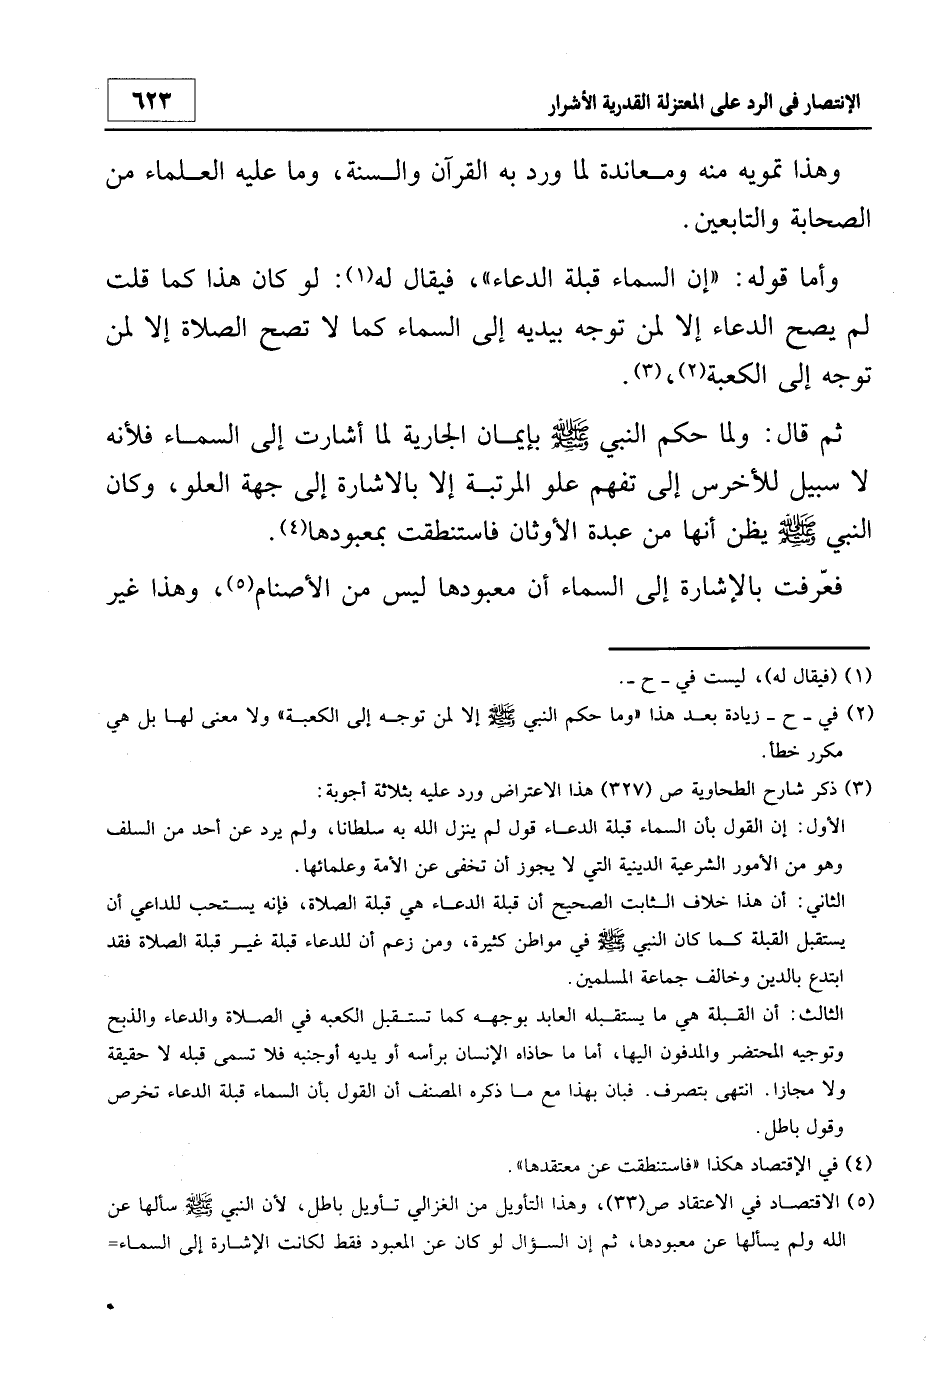 الإنتصار في الرد على المعتزلة القدرية الأشرار
٦٢٣
وهذا تمويه منه ومعاندة لما ورد به القرآن والسنة، وما عليه العلماء من
الصحابة والتابعين.
وأما قوله: «إن السماء قبلة الدعاء»، فيقال له(١): لو كان هذا كما قلت
لم يصح الدعاء إلا لمن توجه بيديه إلى السماء كما لا تصح الصلاة إلا لمن
توجه إلى الكعبة(٢)،(٣).
ثم قال: ولما حكم النبي ﷺ بإيمان الجارية لما أشارت إلى السماء فلأنه
لا سبيل للأخرس إلى تفهم علو المرتبة إلا بالاشارة إلى جهة العلو، وكان
النبي ﷺ يظن أنها من عبدة الأوثان فاستنطقت بمعبودها(٤).
فعّرفت بالإشارة إلى السماء أن معبودها ليس من الأصنام(٥)، وهذا غير
(١) (فيقال له)، ليست في - ح -.
(٢) في - ح - زيادة بعد هذا «وما حكم النبي ﷺ إلا لمن توجه إلى الكعبة» ولا معنى لها بل هي
مكرر خطأ.
(٣) ذكر شارح الطحاوية ص (٣٢٧) هذا الاعتراض ورد عليه بثلاثة أجوبة:
الأول: إن القول بأن السماء قبلة الدعاء قول لم ينزل الله به سلطانا، ولم يرد عن أحد من السلف
وهو من الأمور الشرعية الدينية التي لا يجوز أن تخفى عن الأمة وعلمائها.
الثاني: أن هذا خلاف الثابت الصحيح أن قبلة الدعاء هي قبلة الصلاة، فإنه يستحب للداعي أن
يستقبل القبلة كما كان النبي ﷺ في مواطن كثيرة، ومن زعم أن للدعاء قبلة غير قبلة الصلاة فقد
ابتدع بالدين وخالف جماعة المسلمين.
الثالث: أن القبلة هي ما يستقبله العابد بوجهه كما تستقبل الكعبه في الصلاة والدعاء والذبح
وتوجيه المحتضر والمدفون اليها، أما ما حاذاه الإنسان برأسه أو يديه أوجنبه فلا تسمى قبله لا حقيقة
ولا مجازا. انتهى بتصرف. فبان بهذا مع ما ذكره المصنف أن القول بأن السماء قبلة الدعاء تخرص
وقول باطل.
(٤) في الإقتصاد هكذا «فاستنطقت عن معتقدها».
(٥) الاقتصاد في الاعتقاد ص(٣٣)، وهذا التأويل من الغزالي تأويل باطل، لأن النبي ﷺ سألها عن
الله ولم يسألها عن معبودها، ثم إن السؤال لو كان عن المعبود فقط لكانت الإشارة إلى السماء=